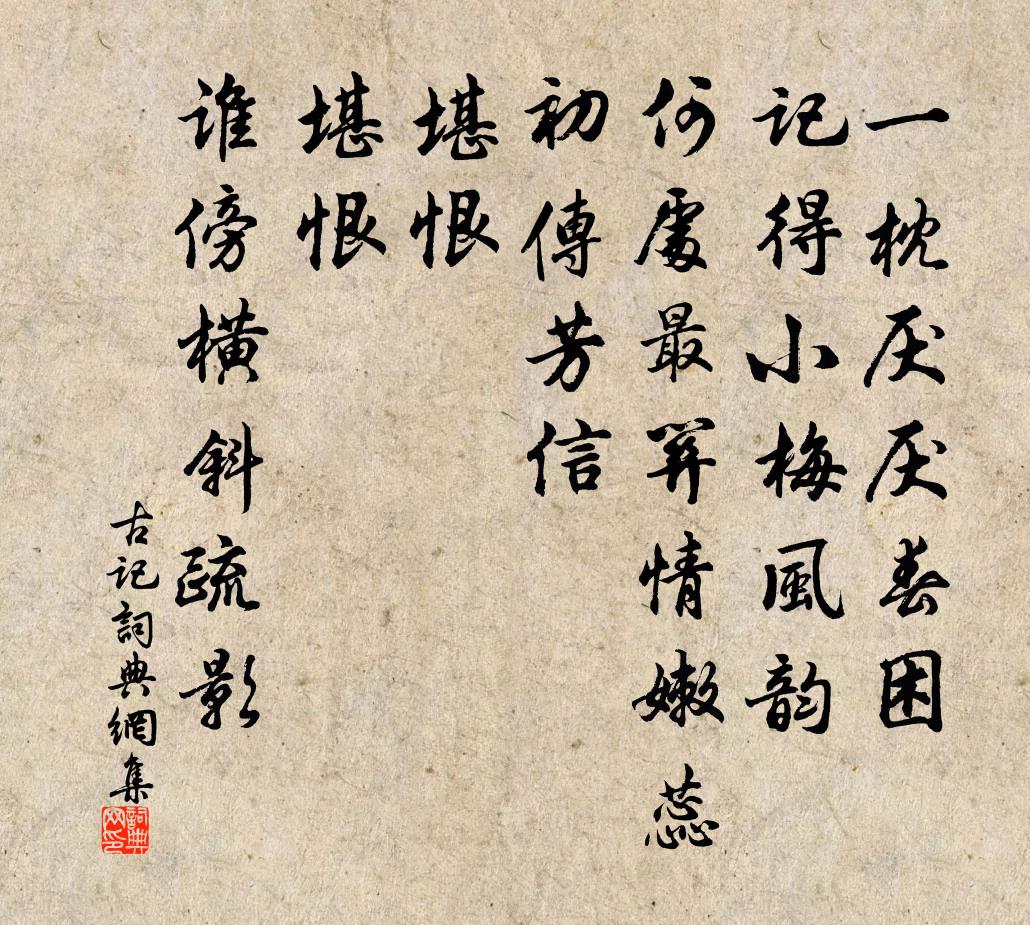 一枕厌厌春困
記得小梅風韵
何處最關情嫩蕊
初傳芳信
堪恨
堪恨
誰傍橫斜疏影
古記詞典網集
詞典网印